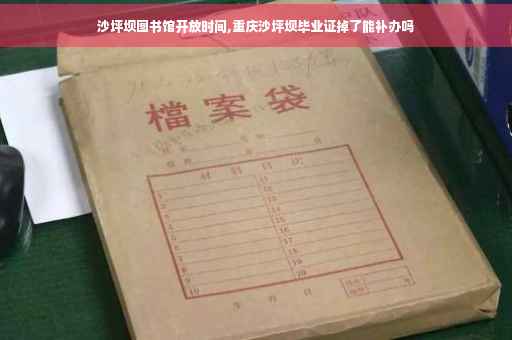 沙坪坝图书馆开放时间,重庆沙坪坝毕业证掉了能补办吗
檔案袋
材料目次
1 11
2 12
3 13
4 14
5 15
6 16
7 17
8 18
9 19
10 20
年 月 日